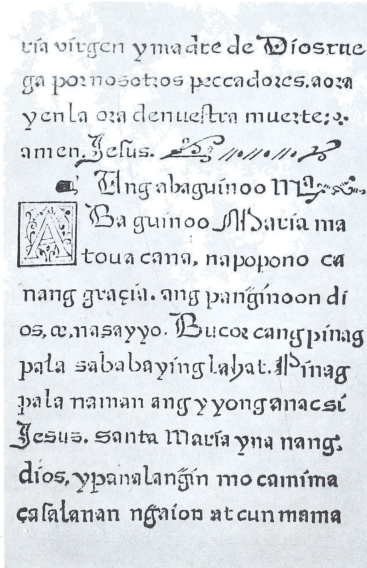 ría virgen y madre de Dios rue
ga por nosotros peccadores. aora
y en la ora de nuestra muerte:
amen, Jesus.
Ang aba guinoo Mª
ABa guinoo Maria ma
toua cana, napopono ca
nang graçia. ang pang̃inoon di
os, œ, nasayyo. Bucor cang pinag
pala sa babaying lahat. Pinag
pala naman ang yyong anac si
Jesus. santa Maria yna nang.
dios, ypanalang̃in mo camima
casalanan ng̃aion at cun mama